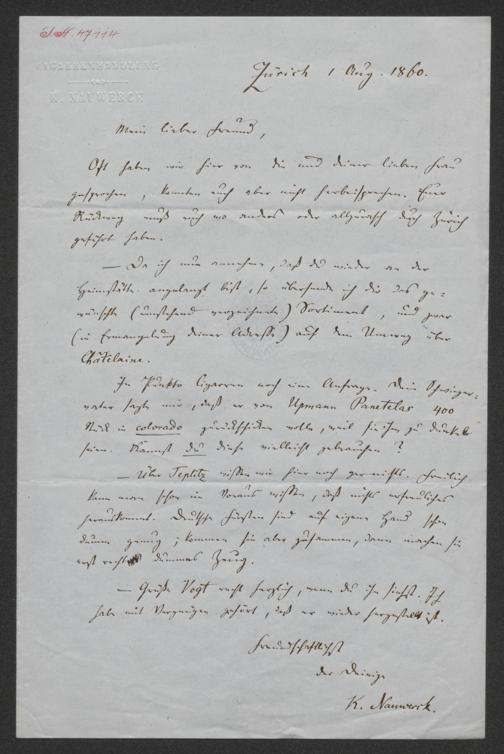 I.N. 47114
CIGARRENHANDLUNG
von
K. NAUWERCK
Zürich 1 Aug. 1860.
Mein lieber Freund,
Oft haben wir hier von dir und deiner lieben Frau
gesprochen, konnten euch aber nicht herbeisprechen. Euer
Rückweg muß euch wo anders oder allzurasch durch Zürich
geführt haben.
— Da ich nun annehme, daß du wieder an der
Heimstätte angelangt bist, so übersende ich dir das ge-
wünschte (umstehend verzeichnete) Sortiment, und zwar
(in Ermangelung deiner Adresse) auf dem Umweg über
Châtelaine.
In Punkto Cigarren noch eine Anfrage. Dein Schwieger-
vater sagte mir, daß er von Upmann Panetelas 400
Stück in colorado zurückschicken wolle, weil sie ihm zu dunkel
seien. Kannst du diese vielleicht gebrauchen?
— Über Teplitz wissen wir hier noch gar nichts. Freilich
kann man schon im Voraus wissen, daß nichts erfreuliches
herauskommt. Deutsche Fürsten sind auf eigene Hand schon
dumm genug; kommen sie aber zusammen, dann machen sie
erst recht dummes Zeug.
— Grüße Vogt recht herzlich, wenn du ihn siehst. Ich
habe mit Vergnügen gehört, daß er wieder hergestellt ist.
Freundschaftlichst
der Deinige
K. Nauwerck.